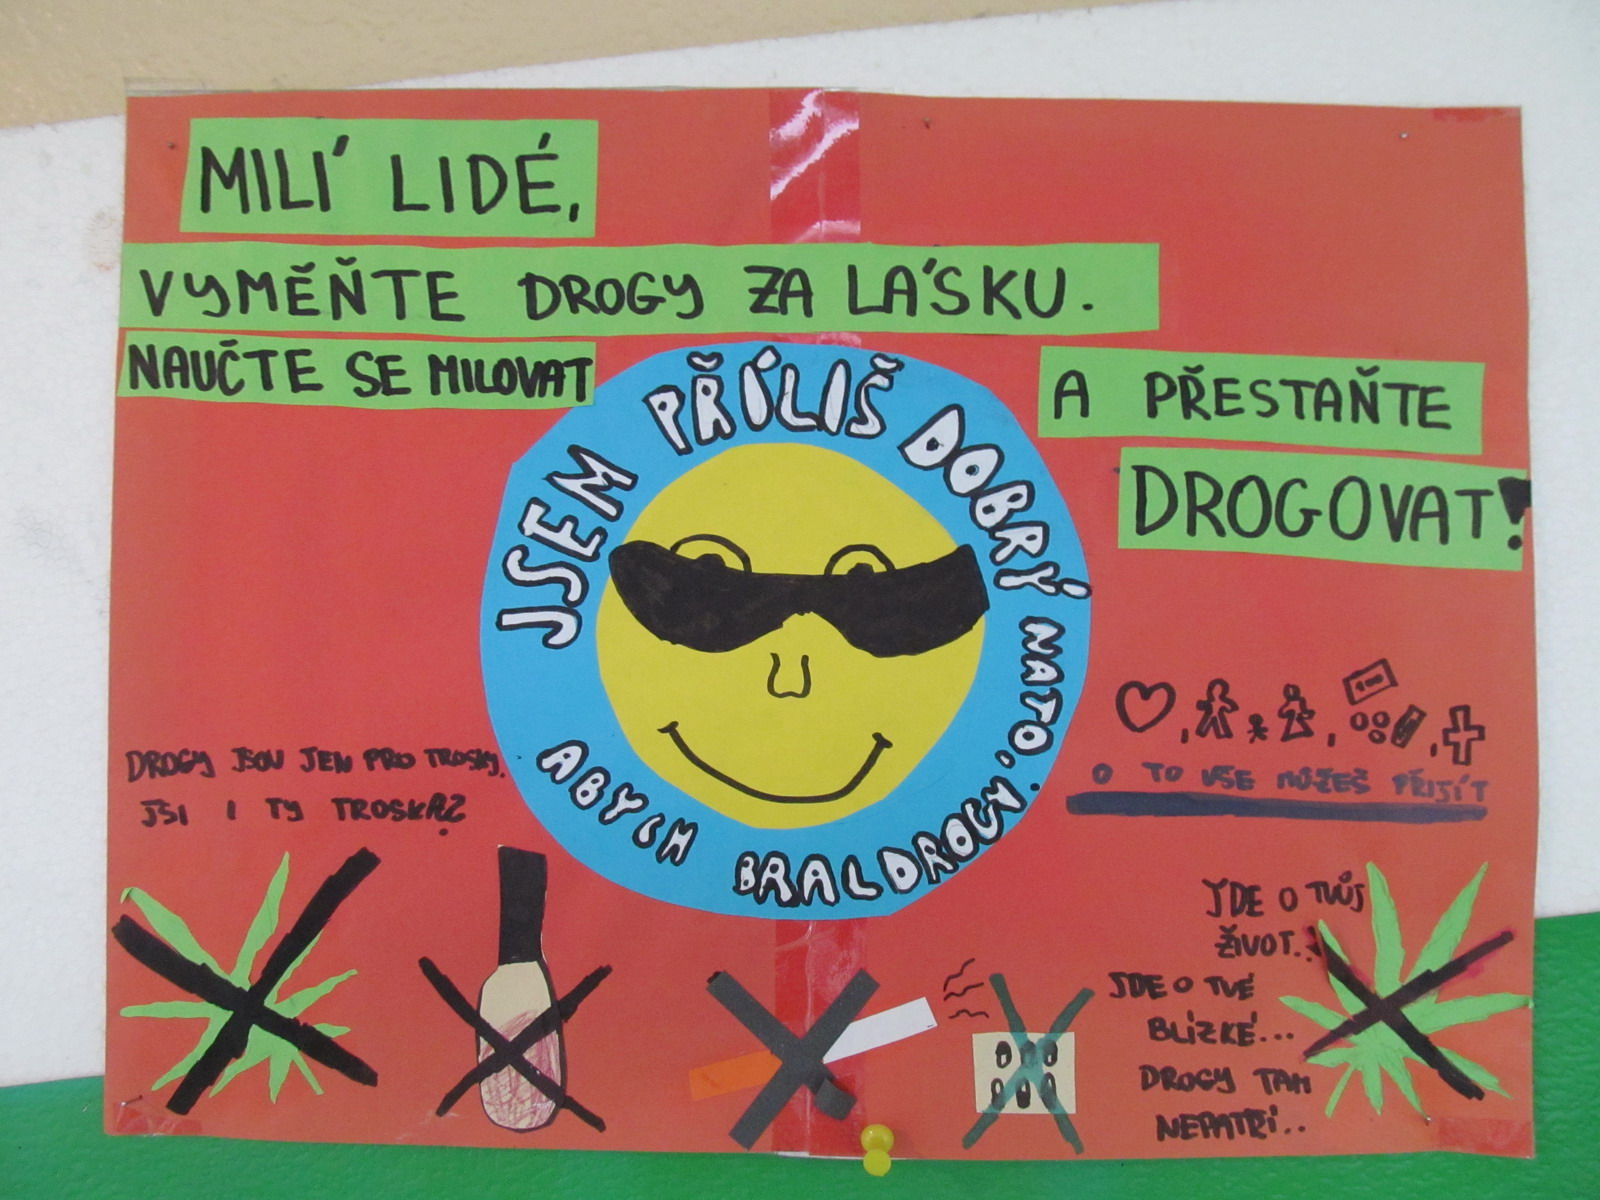 MILÍ LIDÉ,
VYMĚŇTE DROGY ZA LÁSKU.
NAUČTE SE MILOVAT
A PŘESTAŇTE
DROGOVAT!
JSEM PŘÍLIŠ DOBRÝ NATO, ABYCH BRAL DROGY
DROGY JSOU JEN PRO TROSKY.
JSI I TY TROSKA?
O TO VŠE MŮŽEŠ PŘIJÍT
JDE O TVŮJ
ŽIVOT..
JDE O TVÉ
BLÍZKÉ...
DROGY TAM
NEPATŘÍ..